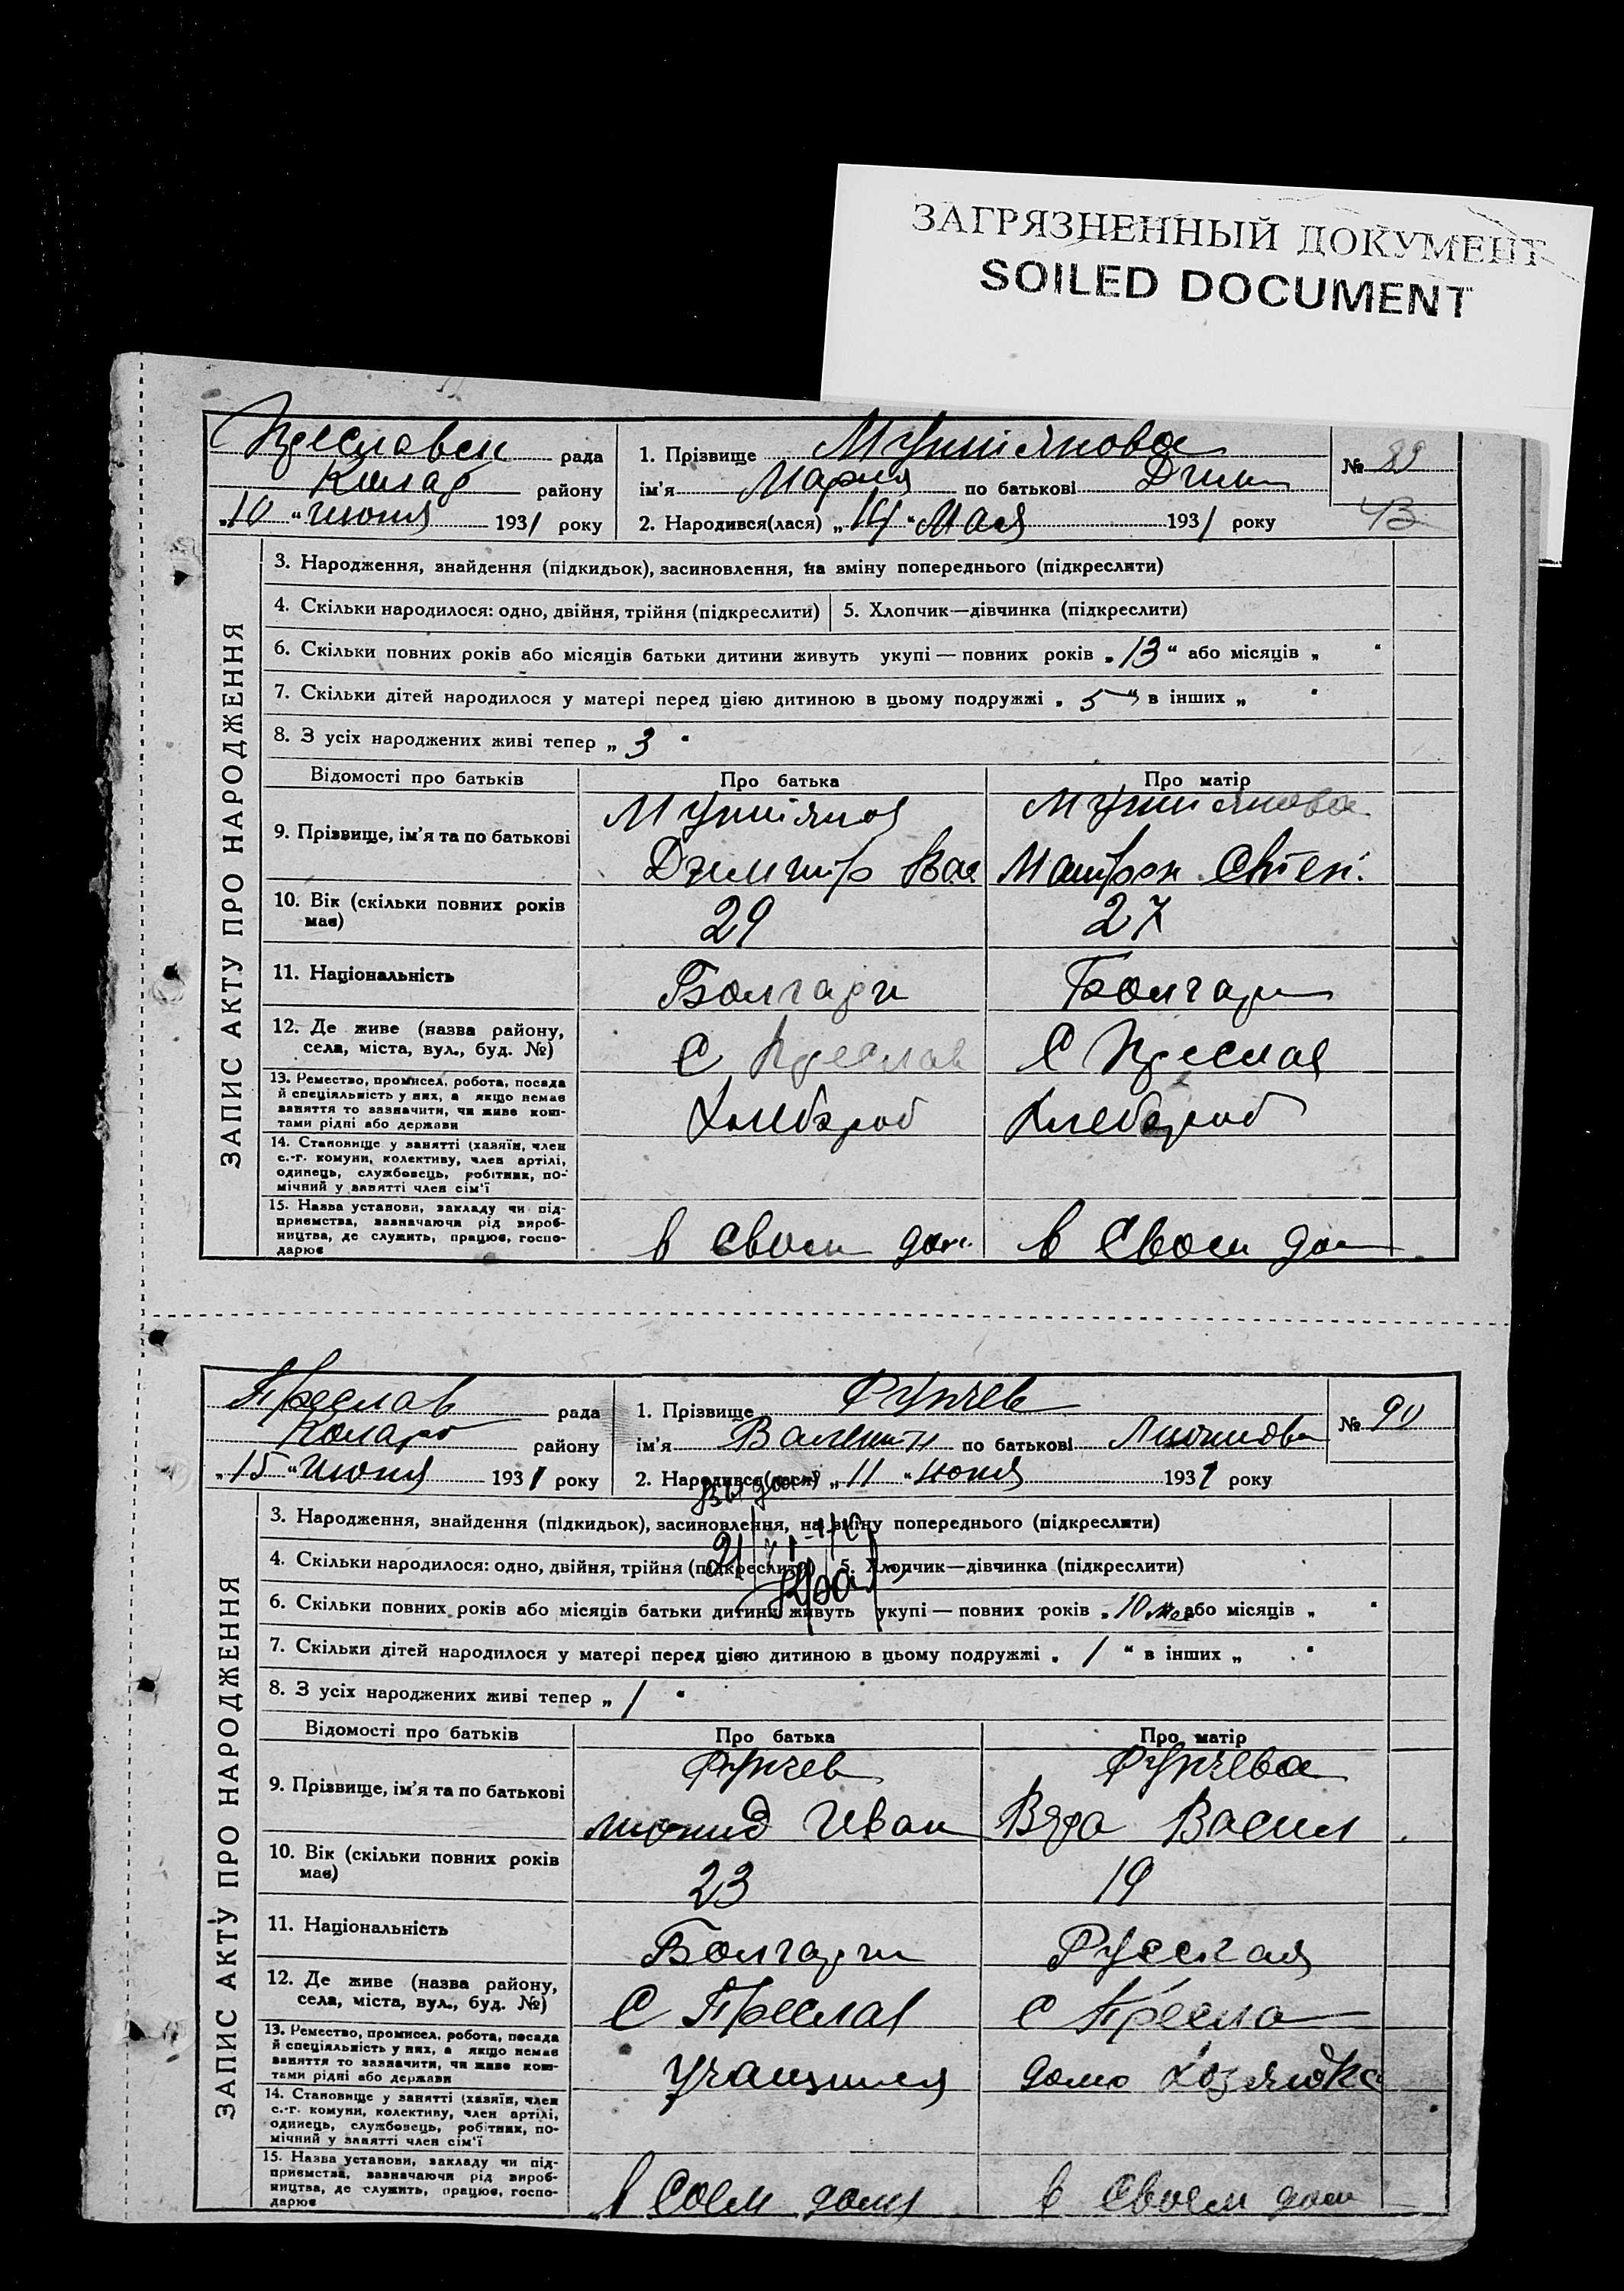 ЗАГРЯЗНЕННЫЙ ДОКУМЕНТ
SOILED DOCUMENT
Преславск рада
Колар району
„10 “ июня 1931 року
1. Прізвище
ім'я Мария по батькові Дмит
2. Народився(лася) „14 “ Мая 1931 року
№ 89
43
ЗАПИС АКТУ ПРО НАРОДЖЕННЯ
3. Народження, знайдення (підкидьок), засиновлення, на зміну попереднього (підкреслити)
4. Скільки народилося: одно, двійня, трійня (підкреслити)
5. Хлопчик—дівчинка (підкреслити)
6. Скільки повних років або місяців батьки дитини живуть укупі — повних років „13“ або місяців „ “
7. Скільки дітей народилося у матері перед цією дитиною в цьому подружжі „5“ в інших „ “
8. З усіх народжених живі тепер „3“
Відомості про батьків
Про батька
Про матір
9. Прізвище, ім'я та по батькові
Дмитр Вас
Матрон Степ.
10. Вік (скільки повних років має)
29
27
11. Національність
Болгари
Болгар
12. Де живе (назва району,
села, міста, вул., буд. №)
С Преслав
С Преслав
13. Ремество, промисел, робота, посада
й спеціяльність у них, а якщо немає
заняття то зазначити, чи живе кош-
тами рідні або держави
Хлебороб
Хлебороб
14. Становище у занятті (хазяїн, член
с.-г. комуни, колективу, член артілі,
одинець, службовець, робітник, по-
мічний у занятті член сім'ї
15. Назва установи, закладу чи під-
приємства, зазначаючи рід вироб-
ництва, де служить, працює, госпо-
дарює
в своем дом
в своем дом
Преслав рада
Колар району
„15 “ июня 1931 року
1. Прізвище Фунчев
ім'я Валентин по батькові
2. Народився(лася) „11 “ июня 1931 року
№ 90
ЗАПИС АКТУ ПРО НАРОДЖЕННЯ
3. Народження, знайдення (підкидьок), засиновлення, на зміну попереднього (підкреслити)
4. Скільки народилося: одно, двійня, трійня (підкреслити)
5. Хлопчик—дівчинка (підкреслити)
6. Скільки повних років або місяців батьки дитини живуть укупі — повних років „10 мес або місяців „ “
7. Скільки дітей народилося у матері перед цією дитиною в цьому подружжі „ 1 “ в інших „ “
8. З усіх народжених живі тепер „ 1 “
Відомості про батьків
Про батька
Про матір
9. Прізвище, ім'я та по батькові
Фунчев
Фунчева
Иван
Вера Васил
10. Вік (скільки повних років має)
23
19
11. Національність
Болгари
Русская
12. Де живе (назва району,
села, міста, вул., буд. №)
С Преслав
С Пресла
13. Ремество, промисел, робота, посада
й спеціяльність у них, а якщо немає
заняття то зазначити, чи живе кош-
тами рідні або держави
учащийся
домо хозяйка
14. Становище у занятті (хазяїн, член
с.-г. комуни, колективу, член артілі,
одинець, службовець, робітник, по-
мічний у занятті член сім'ї
15. Назва установи, закладу чи під-
приємства, зазначаючи рід вироб-
ництва, де служить, працює, госпо-
дарює
в соем доми
в своем дом